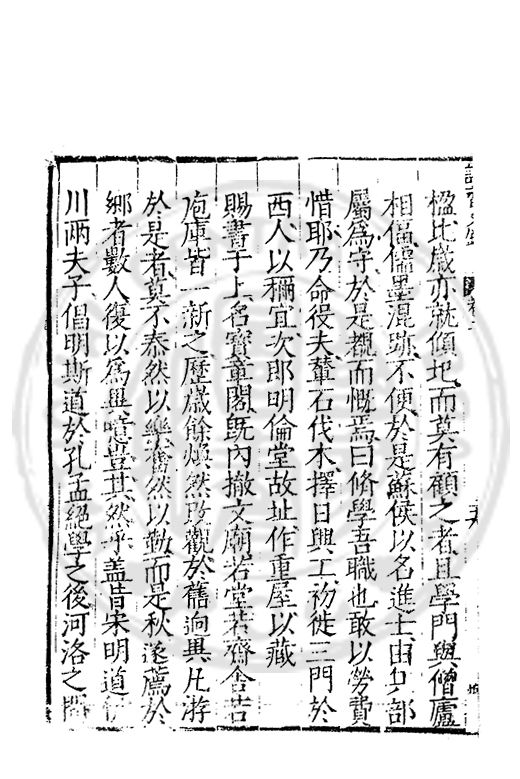 楹比歲亦就傾圯而莫有顧之者且學門與僧廬
相偪儒墨混跡不便於是蘇侯以名進士由兵部
屬爲守於是覩而慨焉曰脩學吾職也敢以勞費
惜耶乃命役夫輦石伐木擇日興工初徙三門於
西人以稱宜次即明倫堂故址作重屋以藏
賜書于上名寳章閣既內撤文廟若堂若齋舍若
庖庫皆一新之歷歲餘煥然改觀於舊逈異凡游
於是者莫不忝然以樂奮然以勤而是秋遂薦於
鄉者數人復以爲異噫豈其然乎盖昔宋明道伊
川兩夫子倡明斯道於孔孟絕學之後河洛之間